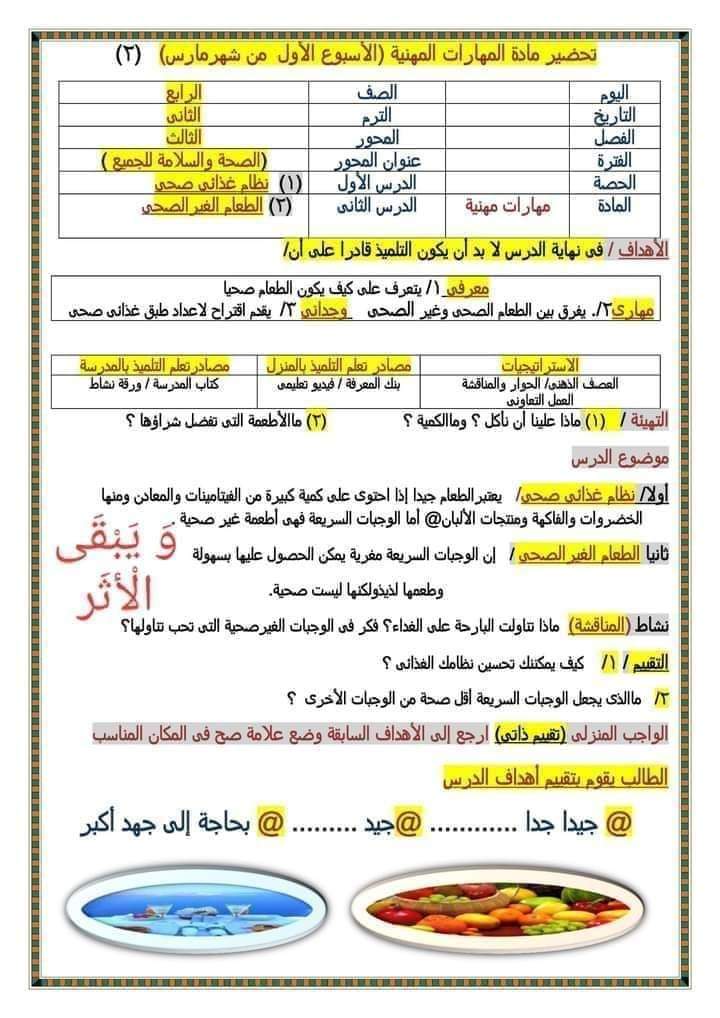 تحضير مادة المهارات المهنية (الأسبوع الأول من شهرمارس) (٢)
اليوم الصف الرابع
التاريخ الترم الثانى
الفصل المحور الثالث
الفترة عنوان المحور (الصحة والسلامة للجميع )
الحصة الدرس الأول (١) نظام غذائى صحى
المادة مهارات مهنية الدرس الثانى (٢) الطعام الغير الصحى
الأهداف / فى نهاية الدرس لا بد أن يكون التلميذ قادرا على أن/
معرفى ١/ يتعرف على كيف يكون الطعام صحيا
مهارى٢/. يفرق بين الطعام الصحى وغير الصحى وجدانى ٣/ يقدم اقتراح لاعداد طبق غذائى صحى
الاستراتيجيات مصادر تعلم التلميذ بالمنزل مصادرتعلم التلميذ بالمدرسة
العصف الذهنى/ الحوار والمناقشة بنك المعرفة / فيديو تعليمى كتاب المدرسة / ورقة نشاط
العمل التعاونى
التهيئة / (١) ماذا علينا أن نأكل ؟ وماالكمية ؟ (٢) ماالأطعمة التى تفضل شراؤها ؟
موضوع الدرس
أولا/ نظام غذائى صحى/ يعتبرالطعام جيدا إذا احتوى على كمية كبيرة من الفيتامينات والمعادن ومنها
الخضروات والفاكهة ومنتجات الألبان@ أما الوجبات السريعة فهى أطعمة غير صحية .
ثانيا الطعام الغير الصحى / إن الوجبات السريعة مغرية يمكن الحصول عليها بسهولة
وطعمها لذيذولكنها ليست صحية.
وَ يَبْقَى
الْأثَر
نشاط (المناقشة) ماذا تناولت البارحة على الغداء؟ فكر فى الوجبات الغيرصحية التى تحب تناولها؟
التقييم / ١/ كيف يمكنك تحسين نظامك الغذائى ؟
٢/ ماالذى يجعل الوجبات السريعة أقل صحة من الوجبات الأخرى ؟
الواجب المنزلى (تقييم ذاتى) ارجع إلى الأهداف السابقة وضع علامة صح فى المكان المناسب
الطالب يقوم بتقييم أهداف الدرس
@ جيدا جدا ............ @جيد ......... @ بحاجة إلى جهد أكبر